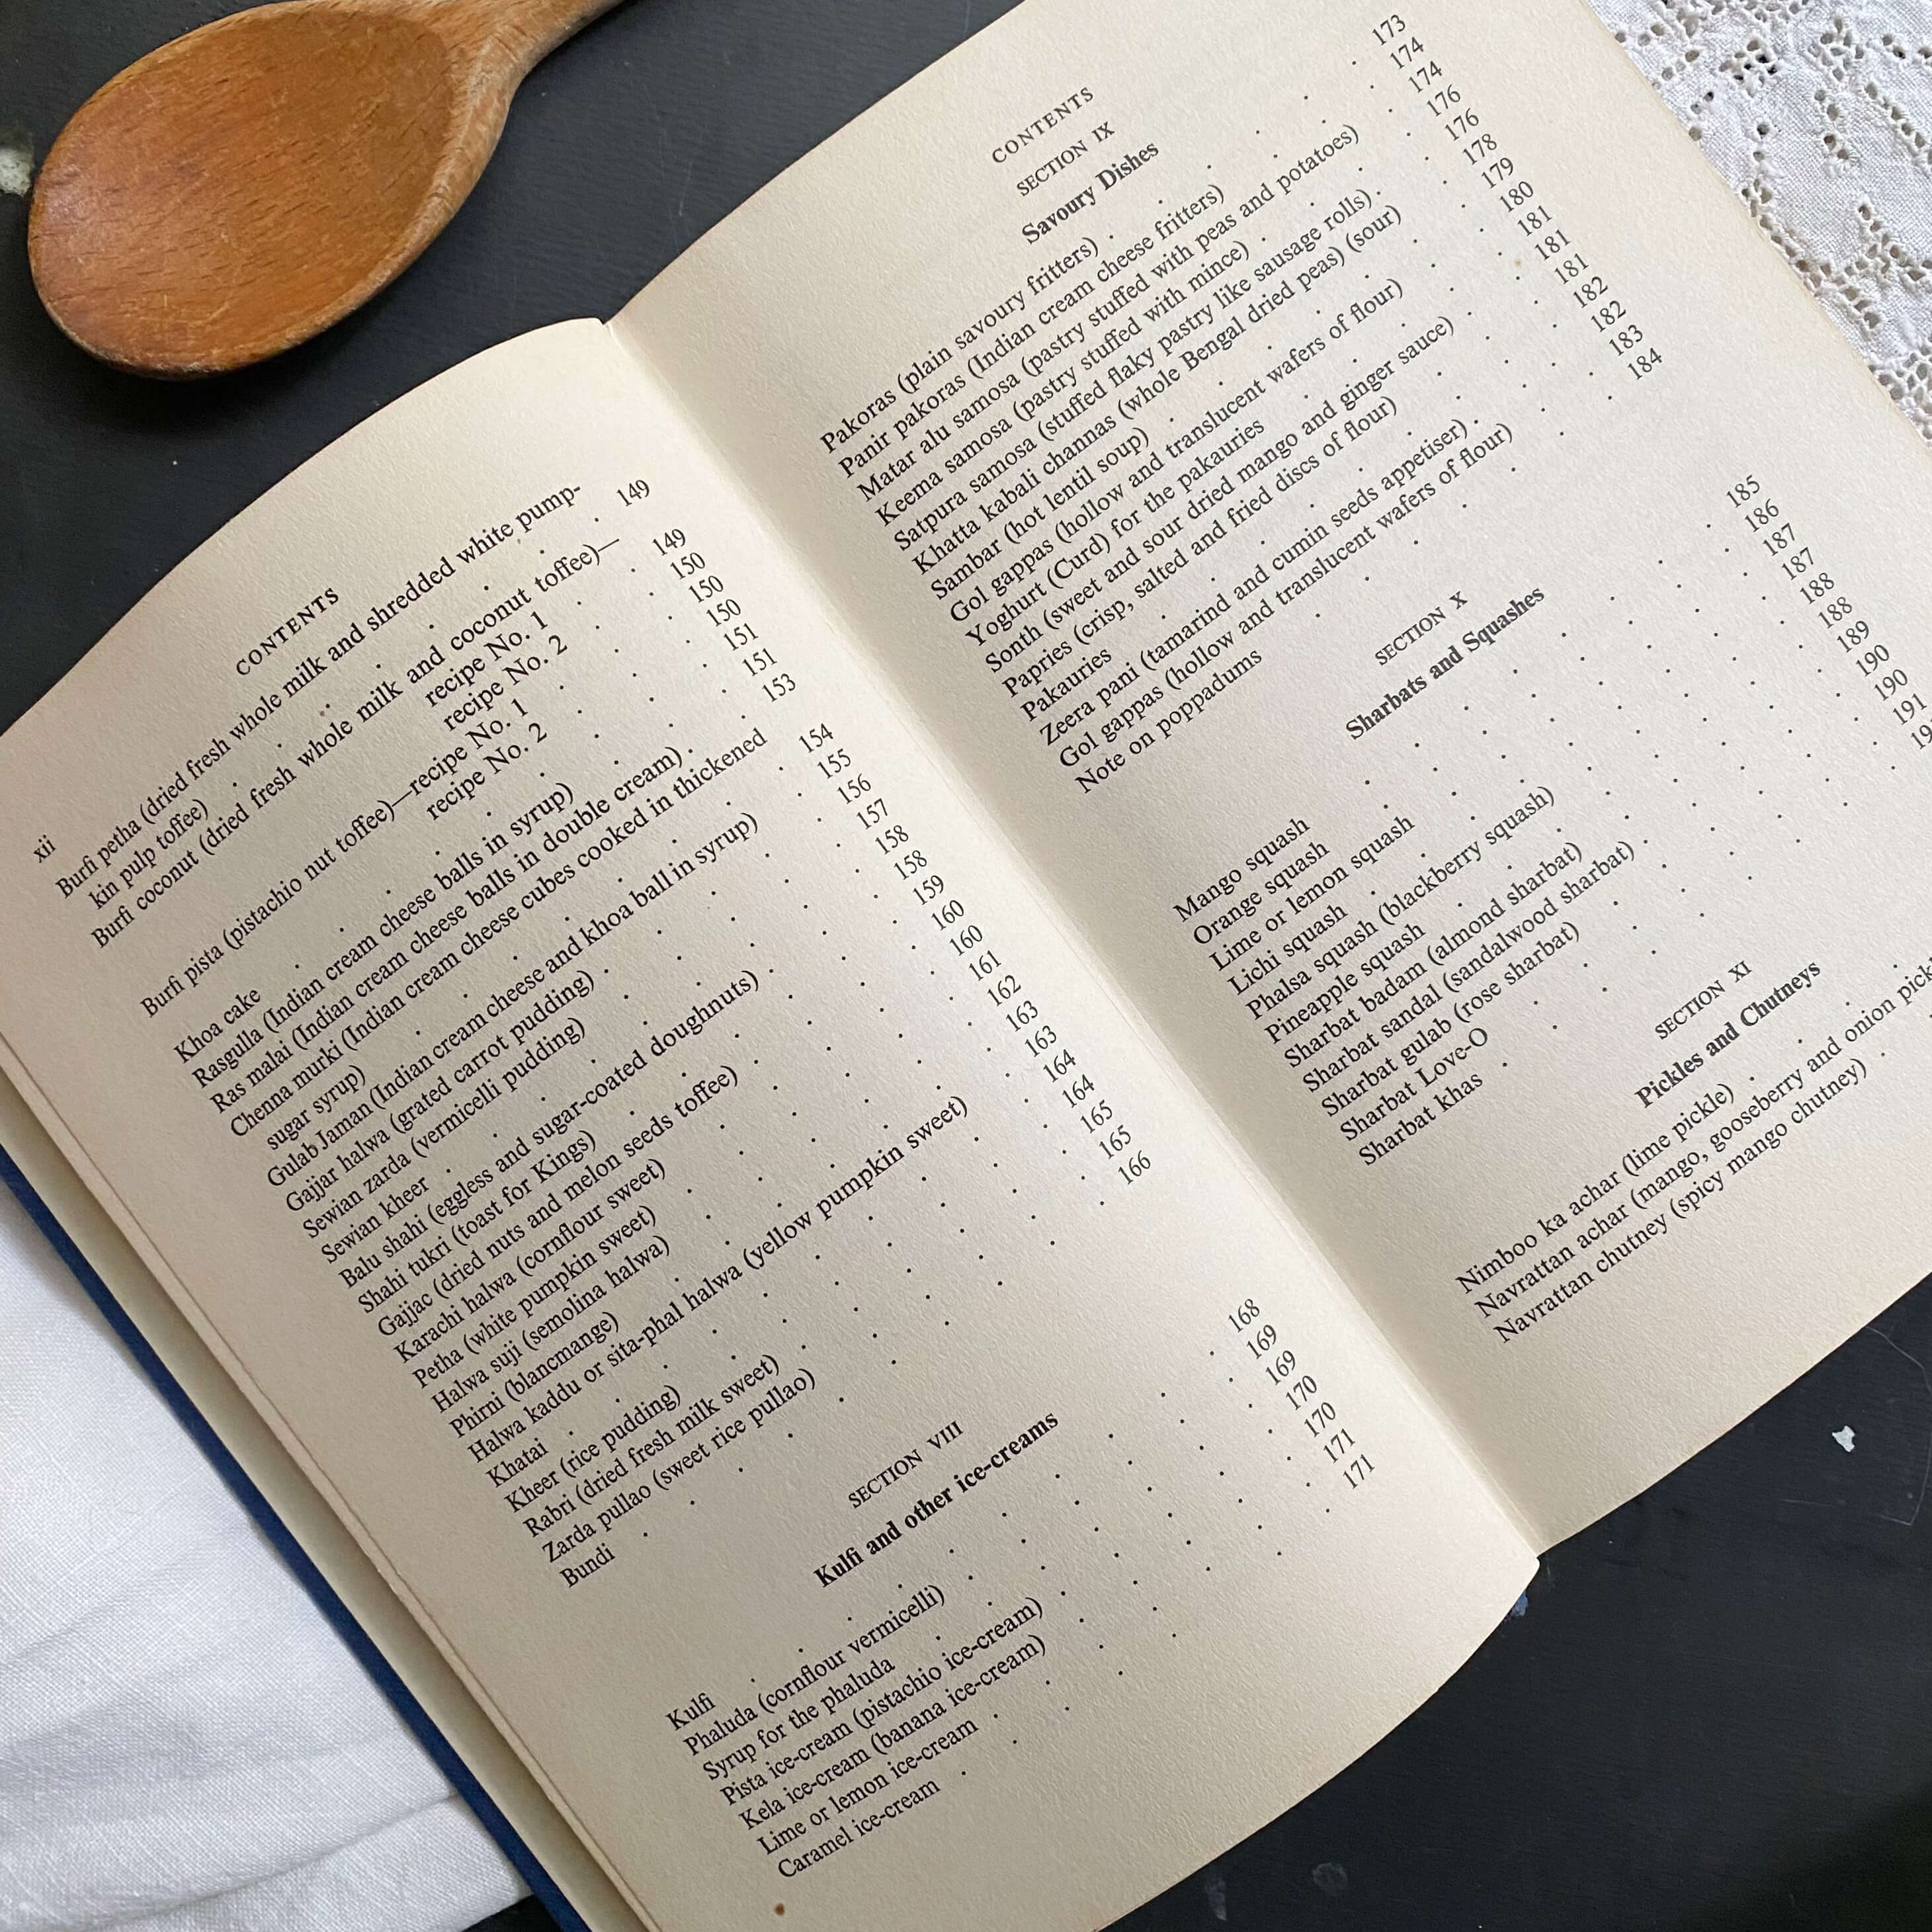 xii
CONTENTS
Burfi petha (dried fresh whole milk and shredded white pump-
kin pulp toffee) . . . . . 149
Burfi coconut (dried fresh whole milk and coconut toffee)—
recipe No. 1 . 149
recipe No. 2 . 150
Burfi pista (pistachio nut toffee)—recipe No. 1 . . 150
recipe No. 2 . . 150
Khoa cake . . . . . . 151
Rasgulla (Indian cream cheese balls in syrup) . . 151
Ras malai (Indian cream cheese balls in double cream) . . 153
Chenna murki (Indian cream cheese cubes cooked in thickened
sugar syrup) . . . . . 154
Gulab Jaman (Indian cream cheese and khoa ball in syrup) . 155
Gajjar halwa (grated carrot pudding) . . . 156
Sewian zarda (vermicelli pudding) . . . 157
Sewian kheer . . . . . 158
Balu shahi (eggless and sugar-coated doughnuts) . . 158
Shahi tukri (toast for Kings) . . . . 159
Gajjac (dried nuts and melon seeds toffee) . . . 160
Karachi halwa (cornflour sweet) . . . . 160
Petha (white pumpkin sweet) . . . . 161
Halwa suji (semolina halwa) . . . . 162
Phirni (blancmange) . . . . . 163
Halwa kaddu or sita-phal halwa (yellow pumpkin sweet) . 163
Khatai . . . . . . 164
Kheer (rice pudding) . . . . . 164
Rabri (dried fresh milk sweet) . . . . 165
Zarda pullao (sweet rice pullao) . . . . 165
Bundi . . . . . . 166
SECTION VIII
Kulfi and other ice-creams
Kulfi . . . . . . 168
Phaluda (cornflour vermicelli) . . . . 169
Syrup for the phaluda . . . . . 169
Pista ice-cream (pistachio ice-cream) . . . 170
Kela ice-cream (banana ice-cream) . . . 170
Lime or lemon ice-cream . . . . 171
Caramel ice-cream . . . . . 171
CONTENTS
SECTION IX
Savoury Dishes
Pakoras (plain savoury fritters) . . . . 173
Panir pakoras (Indian cream cheese fritters) . . 174
Matar alu samosa (pastry stuffed with peas and potatoes) . 174
Keema samosa (pastry stuffed with mince) . . . 176
Satpura samosa (stuffed flaky pastry like sausage rolls) . . 176
Khatta kabali channas (whole Bengal dried peas) (sour) . 178
Sambar (hot lentil soup) . . . . 179
Gol gappas (hollow and translucent wafers of flour) . . 180
Yoghurt (Curd) for the pakauries . . . 181
Sonth (sweet and sour dried mango and ginger sauce) . . 181
Papries (crisp, salted and fried discs of flour) . . 181
Pakauries . . . . . . 182
Zeera pani (tamarind and cumin seeds appetiser) . . 182
Gol gappas (hollow and translucent wafers of flour) . . 183
Note on poppadums . . . . . 184
SECTION X
Sharbats and Squashes
Mango squash . . . . . 185
Orange squash . . . . . 186
Lime or lemon squash . . . . . 187
Lichi squash . . . . . 187
Phalsa squash (blackberry squash) . . . 188
Pineapple squash . . . . . 188
Sharbat badam (almond sharbat) . . . 189
Sharbat sandal (sandalwood sharbat) . . . 190
Sharbat gulab (rose sharbat) . . . . 190
Sharbat Love-O . . . . . 191
Sharbat khas . . . . .
SECTION XI
Pickles and Chutneys
Nimboo ka achar (lime pickle) . .
Navrattan achar (mango, gooseberry and onion
Navrattan chutney (spicy mango chutney) .